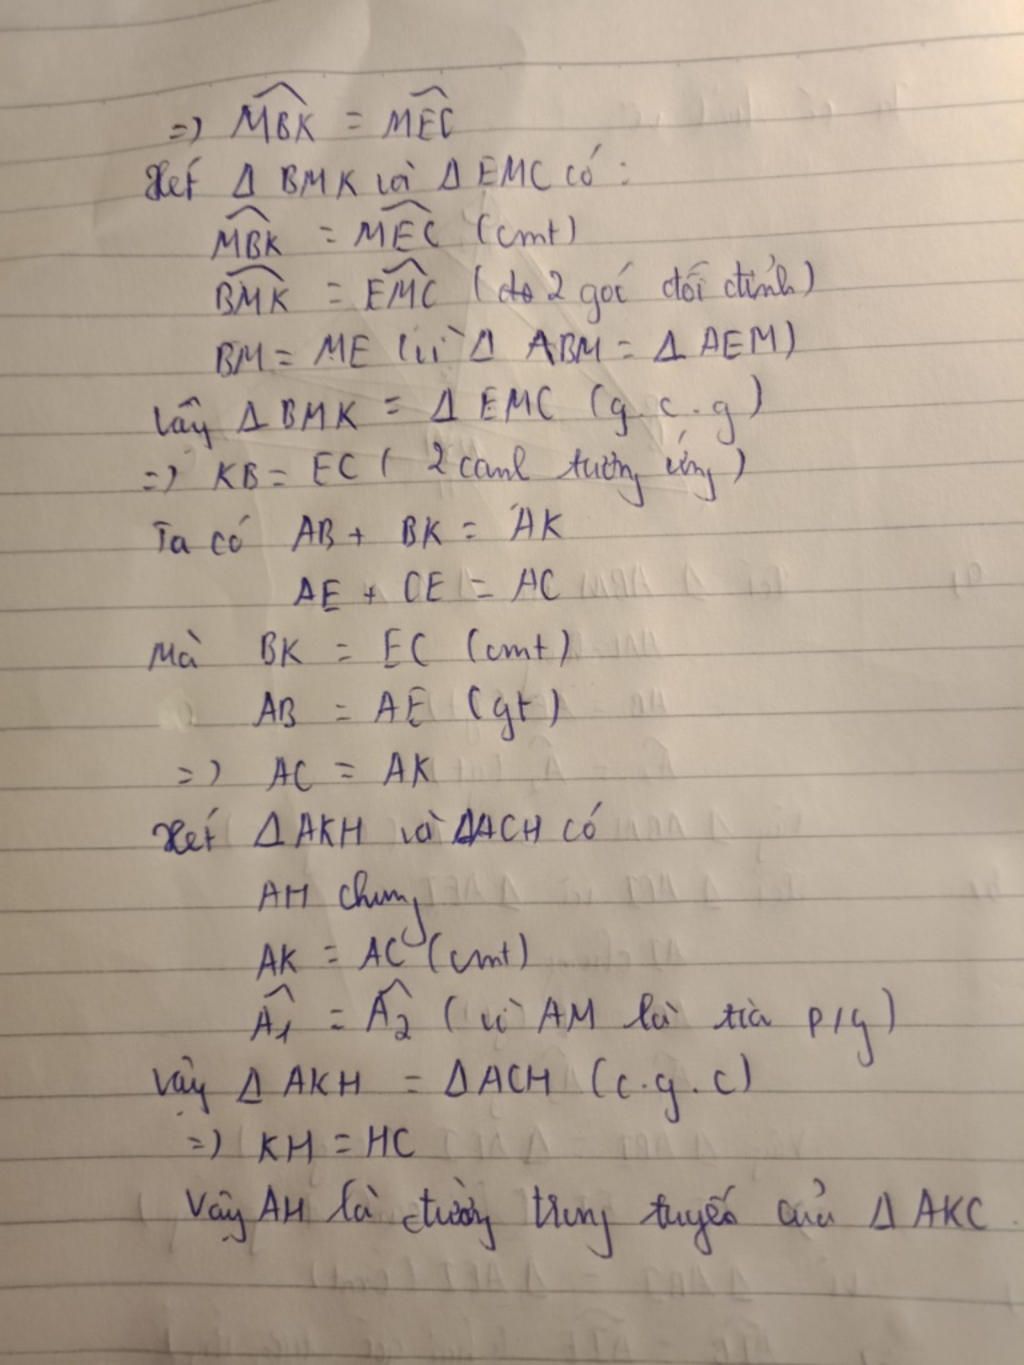 => MBK = MEC
Xét Δ BMK và Δ EMC có :
MBK = MEC (cmt)
BMK = EMC ( do 2 goc đối đỉnh)
BM = ME (vì Δ ABM = Δ AEM)
Vậy Δ BMK = Δ EMC (g.c.g)
=> KB = EC ( 2 canh tương ứng)
Ta có AB + BK = AK
AE + CE = AC
Mà BK = EC (cmt)
AB = AE (gt)
=> AC = AK
Xét Δ AKH và Δ ACH có
AH chung
AK = AC (cmt)
A1 = A2 ( vì AM là tia p/g)
Vậy Δ AKH = Δ ACH (c.g.c)
=> KH = HC
Vậy AH là đường trung tuyến của Δ AKC